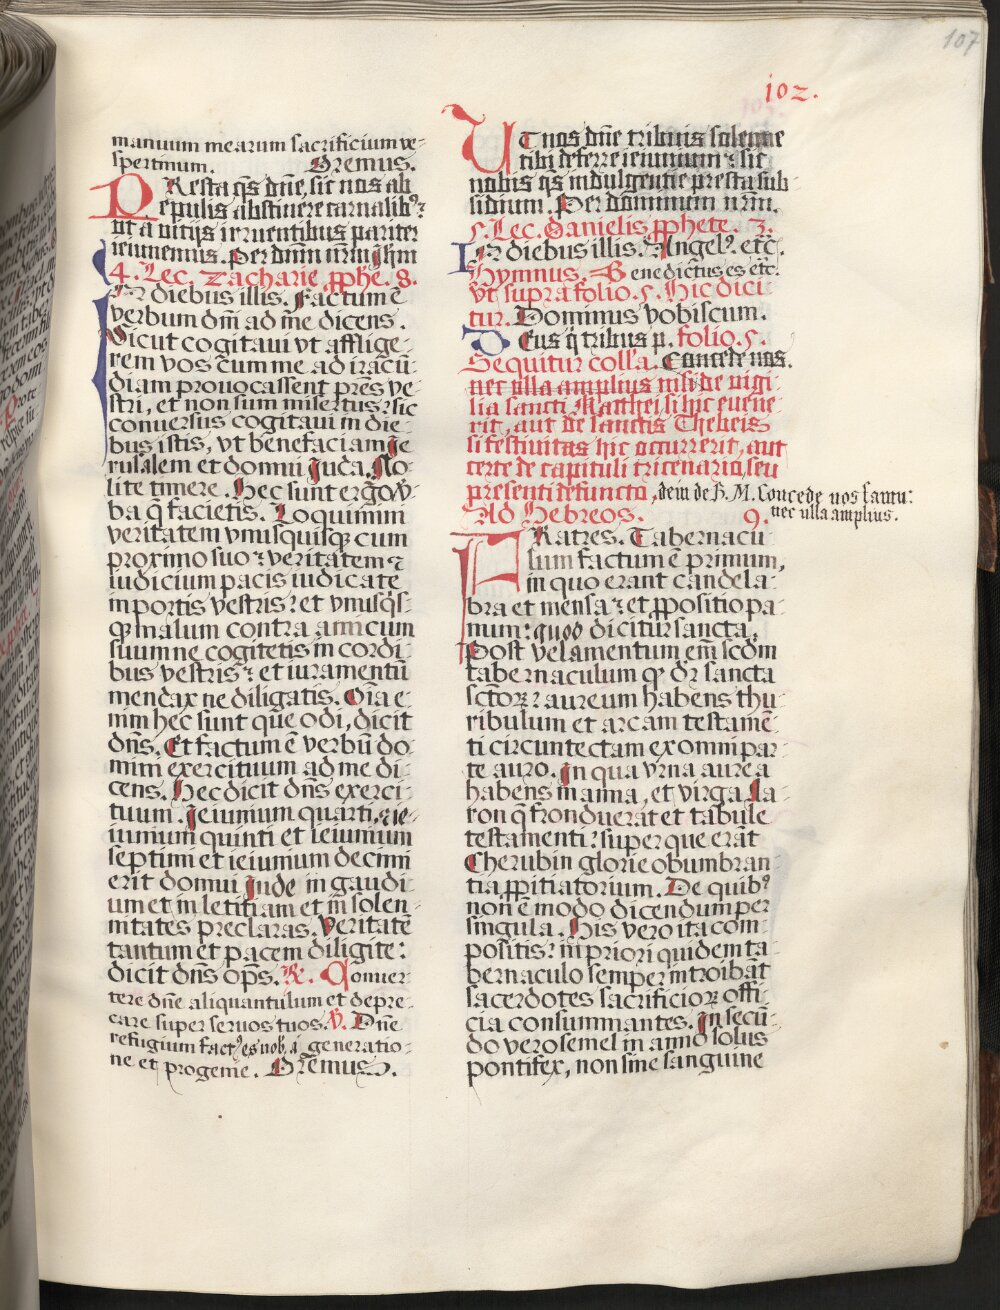 107
102.
manuum mearum sacrificium ve-
spertinum. Oremus.
PResta qs dñe, sic nos ab
epulis abstinere carnalib9:
ut a vitijs irruentibus pariter
ieiunemus. Per dñm nrm Jhm
4. Lec. Zacharie pphe. 8.
IN diebus illis. Factum ē
verbum dñi ad me dicens.
Sicut cogitavi vt afflige-
rem vos cum me ad iracū-
diam provocassent prēs ve-
stri, et non sum misertus: sic
conversus cogitavi in die-
bus istis, vt benefaciam Je-
rusalem et domui Juda. No-
lite timere. Hec sunt ergo v-
ba q̄ facietis. Loquimini
veritatem vnusquisq; cum
proximo suo: veritatem &
iudicium pacis iudicate
in portis vestris: et vnusqs-
q; malum contra amicum
suum ne cogitetis in cordi-
bus vestris: et iuramentū
mendax ne diligatis. Oīa e-
nim hec sunt que odi, dicit
dñs. Et factum ē verbū do-
mini exercituum ad me di-
cens. Hec dicit dñs exerci-
tuum. Jeiunium quarti, & ie-
iunium quinti et ieiunium
septimi et ieiunium decimi
erit domui Jude in gaudi-
um et in letitiam et in solen-
nitates preclaras. Veritatē
tantum et pacem diligite:
dicit dñs ops. R. Conver-
tere dñe aliquantulum et depre-
care super servos tuos. V. Dñe
refugium fact9 es nob. a generatio-
ne et progenie. Oremus.
UT nos dñe tribuis solenne
tibi deferre ieiunium: sic
nobis qs indulgentie presta sub-
sidium. Per dominum nrm.
5. Lec. Danielis pphete. 3.
IN diebus illis. Angel9. etc̄.
Hymnus. Benedictus es etc̄.
vt supra folio. 5. Hic dici-
tur. Dominus vobiscum.
DEus q̄ tribus p. folio. 5.
Sequitur colla. Concede nos.
nec ulla amplius nisi de vigi-
lia sancti Matthei si hic evene-
rit, aut de sanctis Thebeis
si festivitas hic occurrerit, aut
certe de capituli tricenario, seu
presenti defuncto, dem de B. M. Concede nos famu:
nec ulla amplius.
Ad Hebreos. 9.
FRatres. Tabernacu-
lum factum ē primum,
in quo erant candela-
bra et mensa: et ppositio pa-
num: quod dicitur sancta.
Post velamentum em̄ scdm
tabernaculum q; dr sancta
sctorꝝ: aureum habens thu-
ribulum et arcam testamē-
ti circuntectam ex omni par-
te auro. In qua vrna aurea
habens manna, et virga Aa-
ron q̄ fronduerat et tabule
testamenti: super que erāt
Cherubin glorie obumbran-
tia ppitiatorium. De quib9
non ē modo dicendum per
singula. His vero ita com-
positis: in priori quidem ta-
bernaculo semper introibāt
sacerdotes sacrificiorꝝ offi-
cia consummantes. In secū-
do vero semel in anno solus
pontifex, non sine sanguine